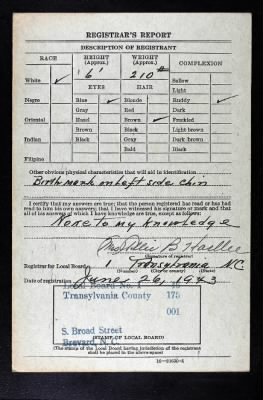 REGISTRAR'S REPORT
DESCRIPTION OF REGISTRANT
RACE HEIGHT (Approx.) WEIGHT (Approx.) COMPLEXION
6' 210#
White ✓ EYES HAIR Sallow
Light
Negro Blue ✓ Blonde Ruddy ✓
Gray Red Dark
Oriental Hazel Brown ✓ Freckled
Brown Black Light brown
Indian Black Gray Dark brown
Bald Black
Filipino
Other obvious physical characteristics that will aid in identification
Birth mark on left side chin
I certify that my answers are true; that the person registered has read or has had
read to him his own answers; that I have witnessed his signature or mark and that
all of his answers of which I have knowledge are true, except as follows:
None to my knowledge
B
(Signature of registrar)
Registrar for Local Board 1 Transylvania N.C.
(Number) (City or county) (State)
Date of registration June 26, 1943
Local Board No. 1
Transylvania County 175
001
S. Broad Street
Brevard, N.C.
(STAMP OF LOCAL BOARD)
(The stamp of the Local Board having jurisdiction of the registrant
shall be placed in the above space)